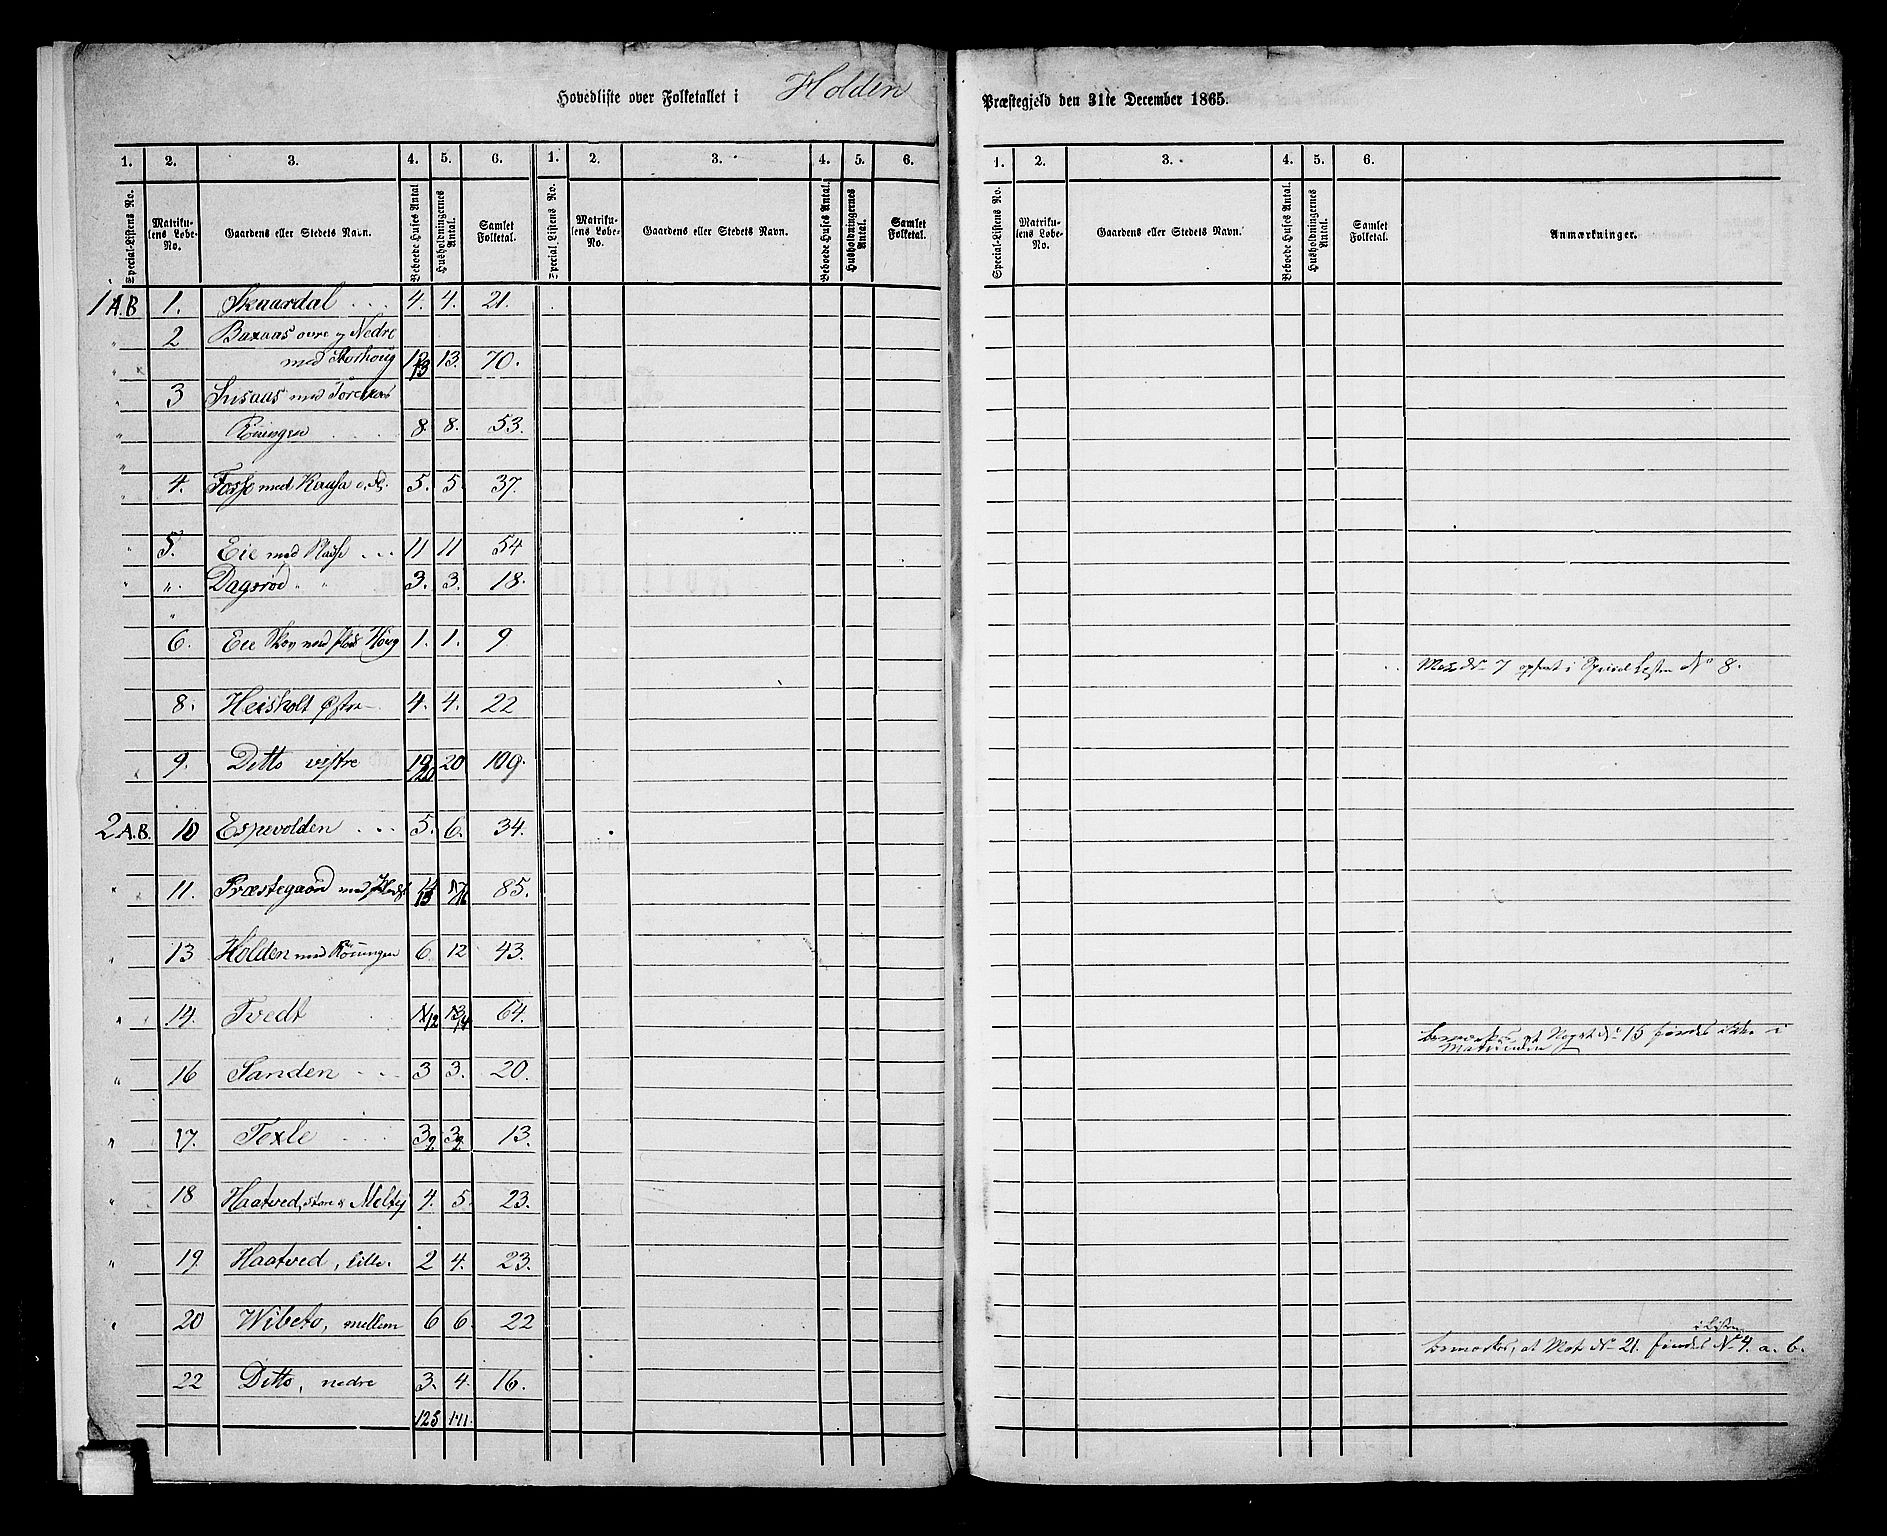 Hovedliste over Folketallet i Holden Præstegjeld den 31te December 1865.
1. 2. 3. 4. 5. 6. 1. 2. 3. 4. 5. 6. 1. 2. 3. 4. 5. 6.
Special-Listens No. Matrikulens Løbe-No. Gaardens eller Stedets Navn. Beboede Huses Antal. Husholdningernes Antal. Samlet Folketal. Special-Listens No. Matrikulens Løbe-No. Gaardens eller Stedets Navn. Beboede Huses Antal. Husholdningernes Antal. Samlet Folketal. Special-Listens No. Matrikulens Løbe-No. Gaardens eller Stedets Navn. Beboede Huses Antal. Husholdningernes Antal. Samlet Folketal. Anmærkninger.
1 A.B 1. Skaardal 4. 4. 21.
2 Baxaas øvre og Nedre
med Storhoug 13 13. 70.
3 Susaas med
8. 8. 53.
4. Fosse med 5. 5. 37.
5. Eie med Pladse 11 11 54
" Dagsrød " " 3. 3. 18.
6. Eie Skov med Plads Houg 1. 1. 9.
No 7 opført i Special Listen No 8.
8. Heisholt Østre 4. 4. 22
9. Ditto vestre 20 20 109.
2 A.B. 10 Espevolden 5. 6. 34.
11. Præstegaard med 85.
13 Holden med Røiningen 6. 12 43.
14. Tvedt 12 14 64.
bemærkes, at No 15 findes ikke i
Matriculen
16 Sanden 3 3. 20.
17. Texle 3 2 3 2. 13.
18 Haatved, store & 4. 5. 23.
19. Haatved, lille. 2 4. 23.
20 Wibeto, mellem 6 6. 22
i Listen
bemærkes, at Mat No 21. findes No 4. a. b.
22 Ditto, nedre 3. 4. 16.
123 141.